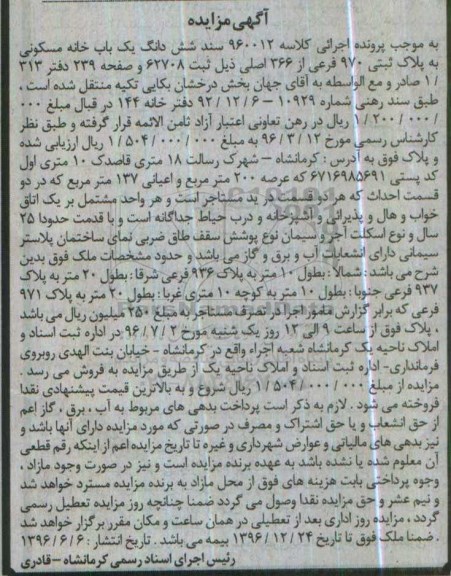 آگهی مزایده
به موجب پرونده اجرائی کلاسه ۹۶۰۰۱۲ سند شش دانگ یک باب خانه مسکونی
به پلاک ثبتی ۹۷۰ فرعی از ۳۶۶ اصلی ذیل ثبت ۶۲۷۰۸ و صفحه ۲۳۹ دفتر ۳۱۳
/ ۱ صادر و مع الواسطه به آقای جهان بخش درخشان بکایی تکیه منتقل شده است ،
طبق سند رهنی شماره ۱۰۹۲۹ – ۹۲ / ۱۲ / ۶ دفتر خانه ۱۴۴ در قبال مبلغ ۰۰۰
/ ۰۰۰ / ۱/۲۰۰ ریال در رهن تعاونی اعتبار آزاد ثامن الائمه قرار گرفته و طبق نظر
کارشناس رسمی مورخ ۹۶ / ۳ / ۱۲ به مبلغ ۰۰۰ / ۰۰۰ / ۵۰۴ / ۱ ریال ارزیابی شده
و پلاک فوق به آدرس : کرمانشاه – شهرک رسالت ۱۸ متری قاصدک ۱۰ متری اول
کد پستی ۶۷۱۶۹۸۵۶۹۱ که عرصه ۲۰۰ متر مربع و اعیانی ۱۳۷ متر مربع که در دو
قسمت احداث که هر دو قسمت در ید مستاجر است و هر واحد مشتمل بر یک اتاق
خواب و هال و پذیرائی و آشپزخانه و درب حیاط جداگانه است و با قدمت حدودا ۲۵
سال و نوع اسکلت آجر و سیمان نوع پوشش سقف طاق ضربی نمای ساختمان پلاستر
سیمانی دارای انشعابات آب و برق و گاز می باشد و حدود مشخصات ملک فوق بدین
شرح می باشد : شمالا : بطول ۱۰ متر به پلاک ۹۳۶ فرعی شرقا : بطول ۲۰ متر به پلاک
۹۳۷ فرعی جنوبا : بطول ۱۰ متر به کوچه ۱۰ متری غربا : بطول ۲۰ متر به پلاک ۹۷۱
فرعی که برابر گزارش مامور اجرا در تصرف مستاجر به مبلغ ۲۵۰ میلیون ریال می باشد
. پلاک فوق از ساعت ۹ الی ۱۲ روز یک شنبه مورخ ۲ / ۷ / ۹۶ در اداره ثبت اسناد و
املاک ناحیه یک کرمانشاه شعبه اجراء واقع در کرمانشاه – خیابان بنت الهدی روبروی
فرمانداری- اداره ثبت اسناد و املاک ناحیه یک از طریق مزایده به فروش می رسد .
مزایده از مبلغ ۰۰۰ / ۰۰۰ / ۵۰۴ / ۱ ریال شروع و به بالاترین قیمت پیشنهادی نقدا
فروخته می شود . لازم به ذکر است پرداخت بدهی های مربوط به آب ، برق ، گاز اعم
از حق انشعاب و یا حق اشتراک و مصرف در صورتی که مورد مزایده دارای آنها باشد و
نیز بدهی های مالیاتی و عوارض شهرداری و غیره تا تاریخ مزایده اعم از اینکه رقم قطعی
آن معلوم شده یا نشده باشد به عهده برنده مزایده است و نیز در صورت وجود مازاد ،
وجوه پرداختی بابت هزینه های فوق از محل مازاد به برنده مزایده مسترد خواهد شد
و نیم عشر و حق مزایده نقدا وصول می گردد ضمنا چنانچه روز مزایده تعطیل رسمی
گردد ، مزایده روز اداری بعد از تعطیلی در همان ساعت و مکان مقرر برگزار خواهد شد
. ضمنا ملک فوق تا تاریخ ۲۴ / ۱۲ / ۱۳۹۶ بیمه می باشد . تاریخ انتشار : ۶ / ۶ / ۱۳۹۶
رئیس اجرای اسناد رسمی کرمانشاه – قادری